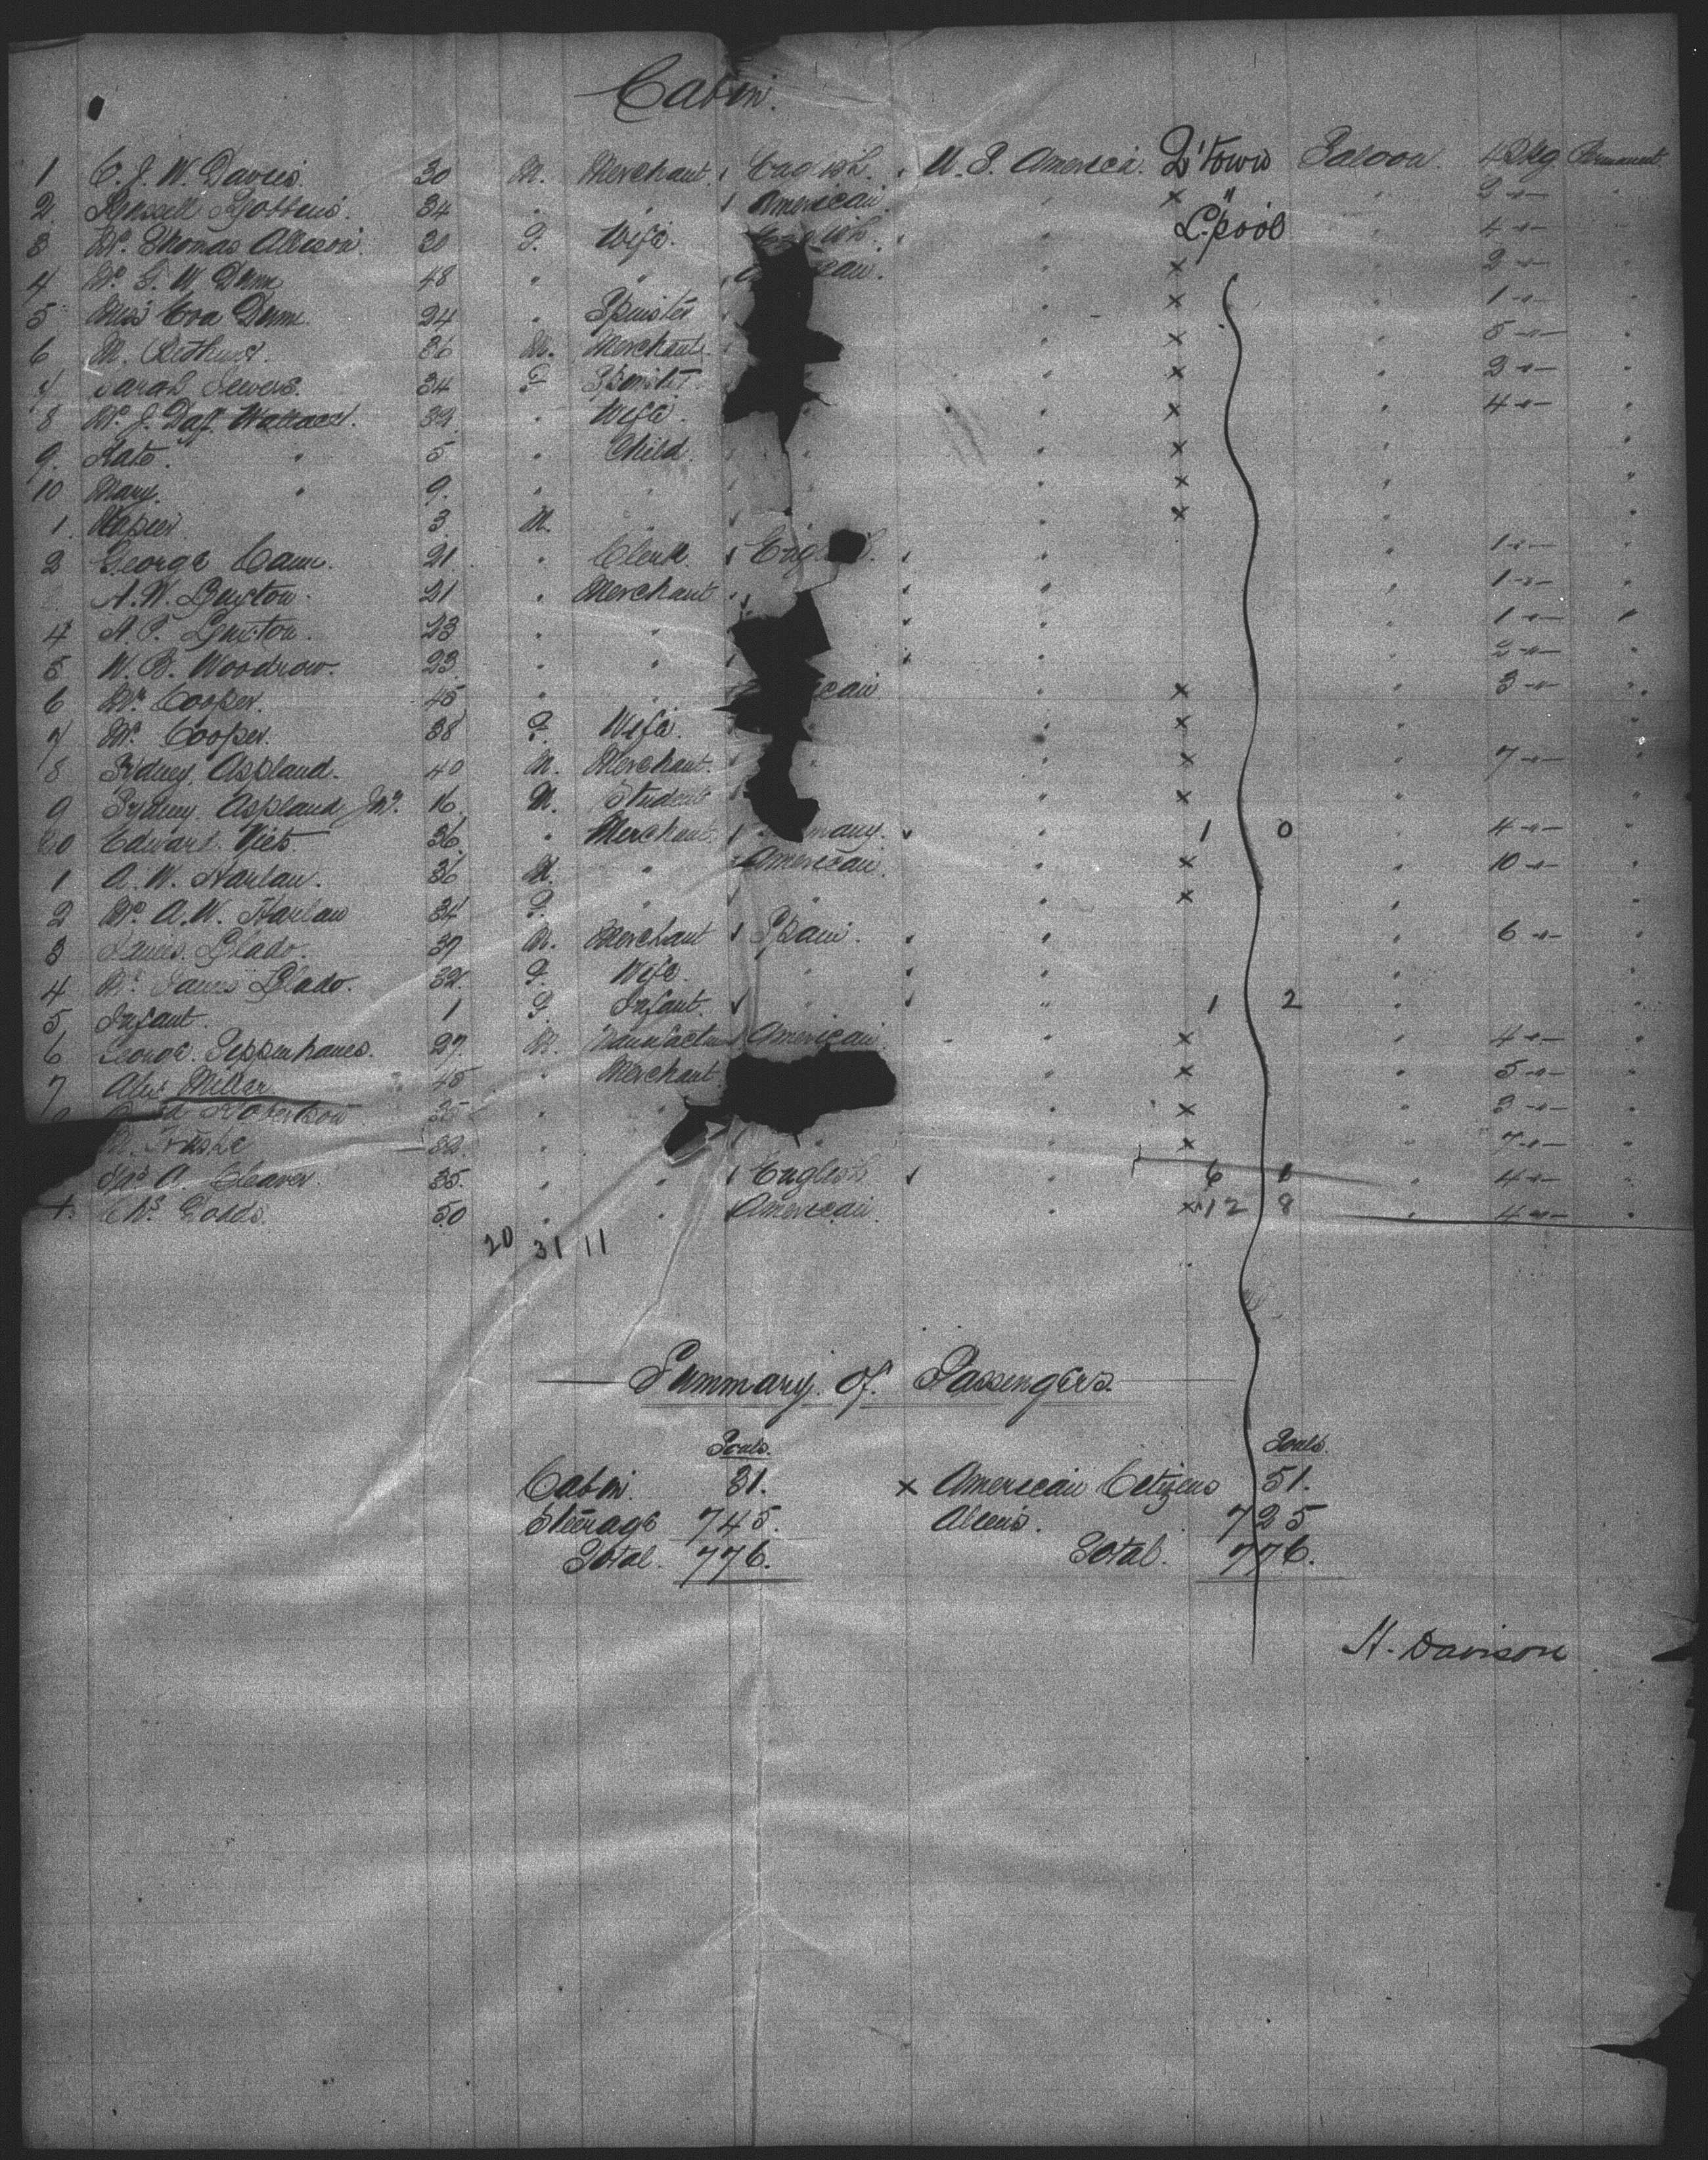 Cabin.
1 C. J. W. Davies. 30 M. Merchant. English. U. S. America. Q'Town Saloon. 4 Pkg Permanent
2 Russell Robbins. 34 " " American " × " " 2 " "
3 Mrs Thomas Alleson. 30 F. Wife. English. " L'pool " 4 " "
4 Mrs G. W. Dunn 48 " " " × " 2 " "
5 Miss Eva Dunn. 24 " Spinster " × " 1 " "
6 M. 36 M. Merchant " × " 5 " "
7 Sarah Sewers. 34 F Spinster " × " 2 " "
8 Mrs J. Daff Wallace. 32 " Wife. " × " 4 " "
9. Kate. " 5 " Child. " " × " "
10 Mary. " 9. " " " " × " "
1. Napier 3 M. " " × " "
2 George Cann. 21 " Clerk. English. " " 1 " "
A. W. Buxton. 21 " Merchant " " 1 " "
4 A. F. 23 " " " " 1 " "
5 W. B. Woodrow. 23 " " " " 2 " "
6 Mr. Cooper. 45 " " " × " 3 " "
7 Mrs. Cooper. 38 F. Wife. " " × " "
8 Sydney Aspland. 40 M. Merchant. " " × " 7 " "
9 Sydney. Aspland Jnr. 16. M. Student " × " "
20 Edward. Viets. 36 " Merchant. " 1 0 " 4 " "
1 A. W. Harlan. 36 M. " American. " × " 10 " "
2 Mrs A. W. Harlan 34 F. " " × " "
3 Llado. 37 M. Merchant Spain. " " 6 " "
4 Mrs Llado. 32. F. Wife " " " "
5 Infant. 1 F. Infant. " " 1 2 " "
6 George. 27. M. American. " × " 4 " "
7 Alex Miller 45 " Merchant. " × " 5 " "
Robertson 35 " " " × " 3 " "
M. 32. " " " × " 7 " "
A. Cleaver. 35. " " English " 6 " 4 " "
Chs. 50 " " American. " × 12 8 " 4 " "
20 31 11
Summary of Passengers.
Souls. Souls.
Cabin. 31. × American Citizens 51.
Steerage 745. Aliens. 725
Total. 776. Total. 776.
H. Davison